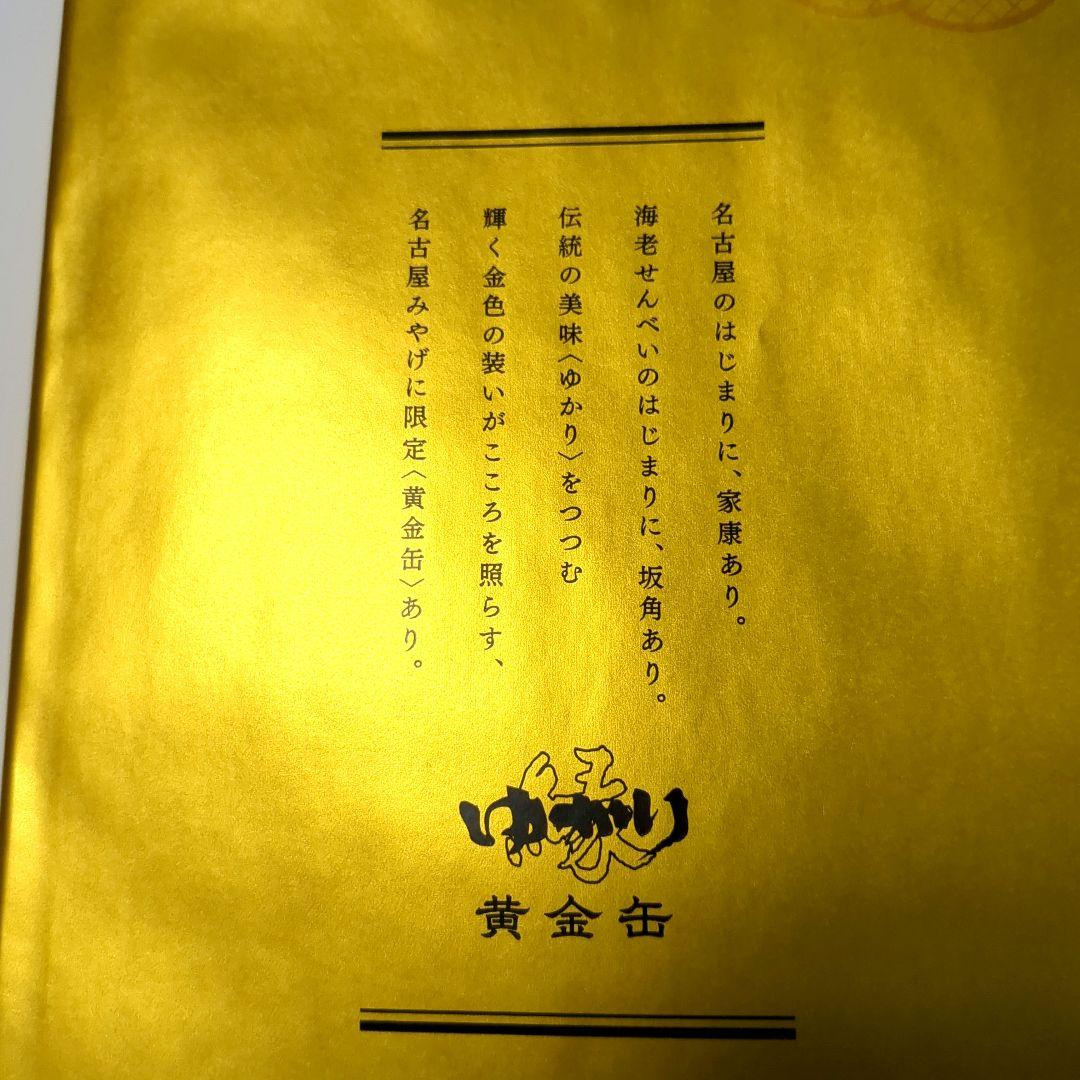 名古屋のはじまりに、家康あり。
海老せんべいのはじまりに、坂角あり。
伝統の美味〈ゆかり〉をつつむ
輝く金色の装いがこころを照らす、
名古屋みやげに限定〈黄金缶〉あり。
縁
ゆかり
黄金缶